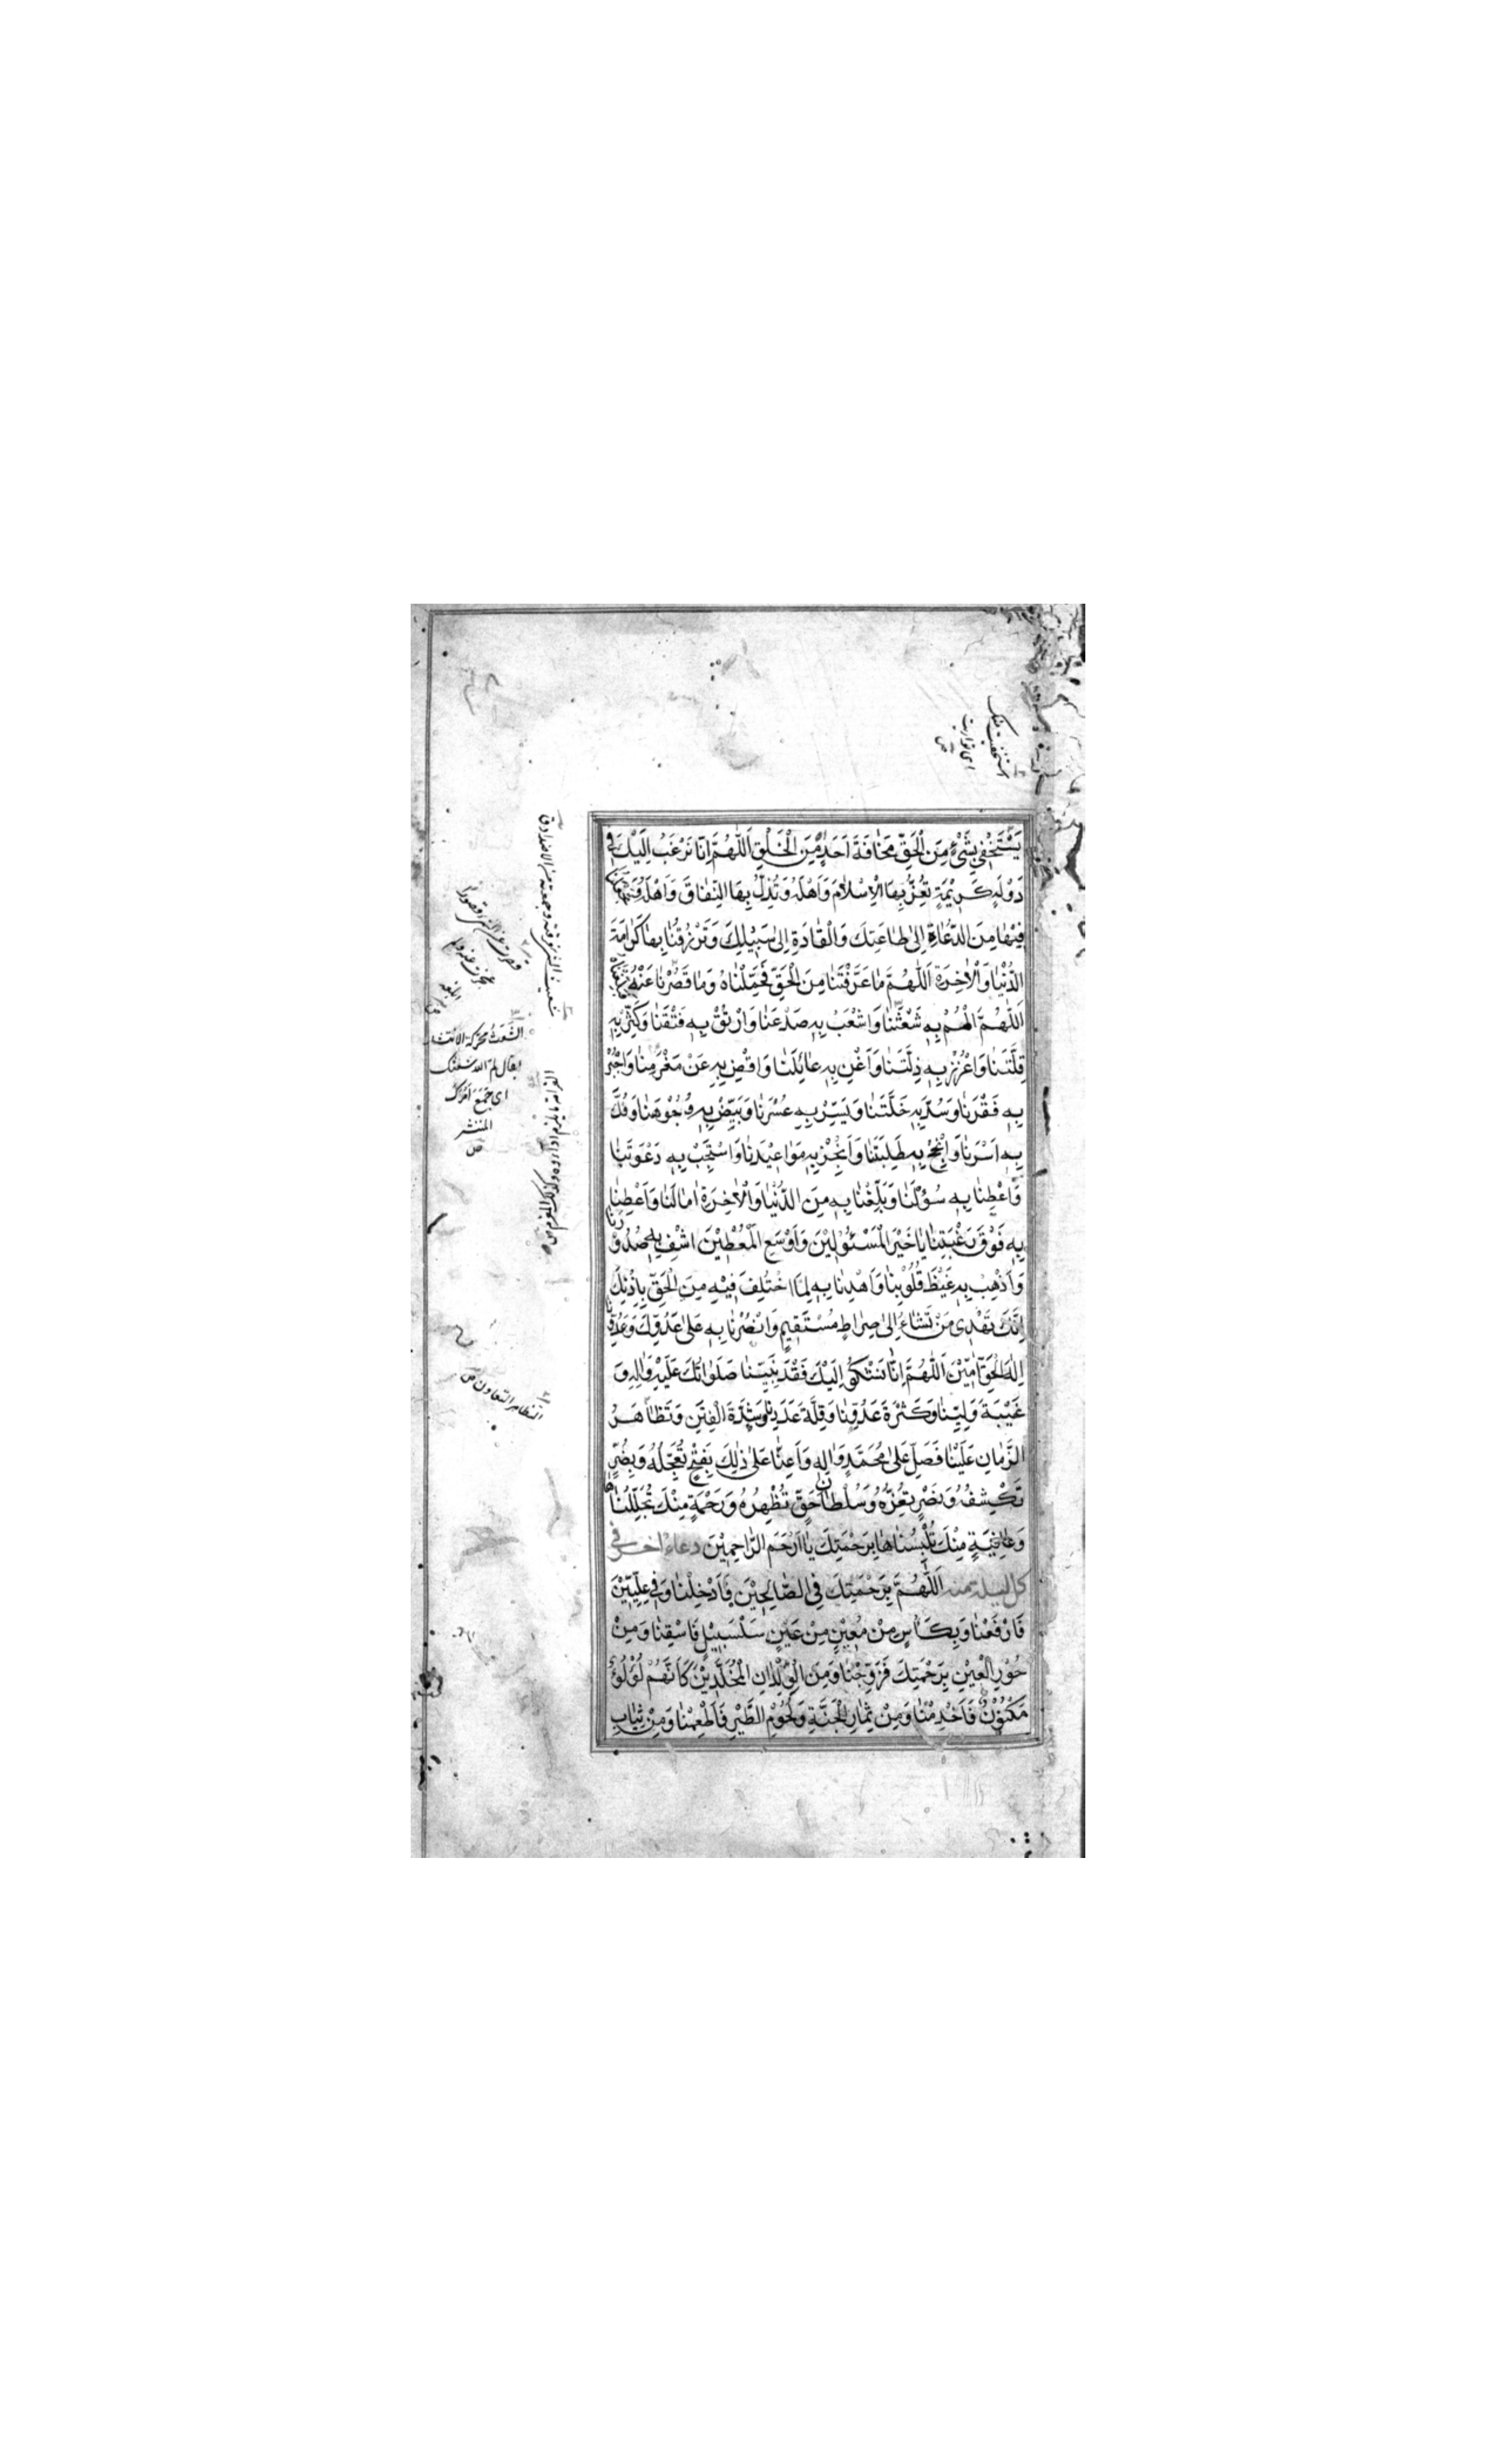 استخفيت منك
اى تواريت
ص
يَسْتَخْفِيَ بِشَيْءٍ مِنَ الْحَقِّ مَخَافَةَ اَحَدٍ مِنَ الْخَلْقِ اَللّٰهُمَّ اِنَّا نَرْغَبُ اِلَيْكَ فِى
دَوْلَةٍ كَرِيْمَةٍ تُعِزُّ بِهَا الْاِسْلَامَ وَاَهْلَهُ وَتُذِلُّ بِهَا النِّفَاقَ وَاَهْلَهُ وَتَجْعَلُنَا
فِيْهَا مِنَ الدُّعَاةِ اِلٰى طَاعَتِكَ وَالْقَادَةِ اِلٰى سَبِيْلِكَ وَتَرْزُقُنَا بِهَا كَرَامَةَ
الدُّنْيَا وَالْاٰخِرَةِ اَللّٰهُمَّ مَا عَرَّفْتَنَا مِنَ الْحَقِّ فَحَمِّلْنَاهُ وَمَا قَصُرْنَا عَنْهُ فَبَلِّغْنَاهُ
اَللّٰهُمَّ الْمُمْ بِهٖ شَعَثَنَا وَاشْعَبْ بِهٖ صَدْعَنَا وَارْتُقْ بِهٖ فَتْقَنَا وَكَثِّرْ بِهٖ
قِلَّتَنَا وَاَعْزِزْ بِهٖ ذِلَّتَنَا وَاَغْنِ بِهٖ عَائِلَنَا وَاقْضِ بِهٖ عَنْ مَغْرَمِنَا وَاجْبُرْ
بِهٖ فَقْرَنَا وَسُدَّ بِهٖ خَلَّتَنَا وَيَسِّرْ بِهٖ عُسْرَنَا وَبَيِّضْ بِهٖ وُجُوْهَنَا وَفُكَّ
بِهٖ اَسْرَنَا وَاَنْجِحْ بِهٖ طَلِبَتَنَا وَاَنْجِزْ بِهٖ مَوَاعِيْدَنَا وَاسْتَجِبْ بِهٖ دَعْوَتَنَا
وَاَعْطِنَا بِهٖ سُؤْلَنَا وَبَلِّغْنَا بِهٖ مِنَ الدُّنْيَا وَالْاٰخِرَةِ اٰمَالَنَا وَاَعْطِنَا
بِهٖ فَوْقَ رَغْبَتِنَا يَا خَيْرَ الْمَسْئُوْلِيْنَ وَاَوْسَعَ الْمُعْطِيْنَ اشْفِ بِهٖ صُدُوْرَنَا
وَاَذْهِبْ بِهٖ غَيْظَ قُلُوْبِنَا وَاهْدِنَا بِهٖ لِمَا اخْتُلِفَ فِيْهِ مِنَ الْحَقِّ بِاِذْنِكَ
اِنَّكَ تَهْدِى مَنْ تَشَاءُ اِلٰى صِرَاطٍ مُسْتَقِيْمٍ وَانْصُرْنَا بِهٖ عَلٰى عَدُوِّكَ وَعَدُوِّنَا
اِلٰهَ الْحَقِّ اٰمِيْنَ اَللّٰهُمَّ اِنَّا نَشْكُو اِلَيْكَ فَقْدَ نَبِيِّنَا صَلَوَاتُكَ عَلَيْهِ وَاٰلِهٖ وَ
غَيْبَةَ وَلِيِّنَا وَكَثْرَةَ عَدُوِّنَا وَقِلَّةَ عَدَدِنَا وَشِدَّةَ الْفِتَنِ وَتَظَاهُرَ
الزَّمَانِ عَلَيْنَا فَصَلِّ عَلٰى مُحَمَّدٍ وَاٰلِهٖ وَاَعِنَّا عَلٰى ذٰلِكَ بِفَتْحٍ تُعَجِّلُهُ وَبِضُرٍّ
تَكْشِفُهُ وَنَصْرٍ تُعِزُّهُ وَسُلْطَانِ حَقٍّ تُظْهِرُهُ وَرَحْمَةٍ مِنْكَ تُجَلِّلُنَاهَا
وَعَافِيَةٍ مِنْكَ تُلْبِسُنَاهَا بِرَحْمَتِكَ يَا اَرْحَمَ الرَّاحِمِيْنَ دعاء اخر فى
كل ليلة منه اَللّٰهُمَّ بِرَحْمَتِكَ فِى الصَّالِحِيْنَ فَاَدْخِلْنَا وَفِى عِلِّيِّيْنَ
فَارْفَعْنَا وَبِكَاْسٍ مِنْ مَعِيْنٍ مِنْ عَيْنٍ سَلْسَبِيْلٍ فَاسْقِنَا وَمِنْ
حُوْرِ الْعِيْنِ بِرَحْمَتِكَ فَزَوِّجْنَا وَمِنَ الْوِلْدَانِ الْمُخَلَّدِيْنَ كَاَنَّهُمْ لُؤْلُؤٌ
مَكْنُوْنٌ فَاَخْدِمْنَا وَمِنْ ثِمَارِ الْجَنَّةِ وَلُحُوْمِ الطَّيْرِ فَاَطْعِمْنَا وَمِنْ ثِيَابِ
شعبت الشئ فرقته وجمعته من الاضداد ق
قصرت عن الشئ قصورا
عجزت عنه
الشَّعَثُ محركة الانتشار
يقال لم الله شعثك
اى جَمَعَ اَمْرَكَ
المنتشر
ص
الغرامة ما يلزم اداؤه وكذلك المغرم ص
التظاهر التعاون ص